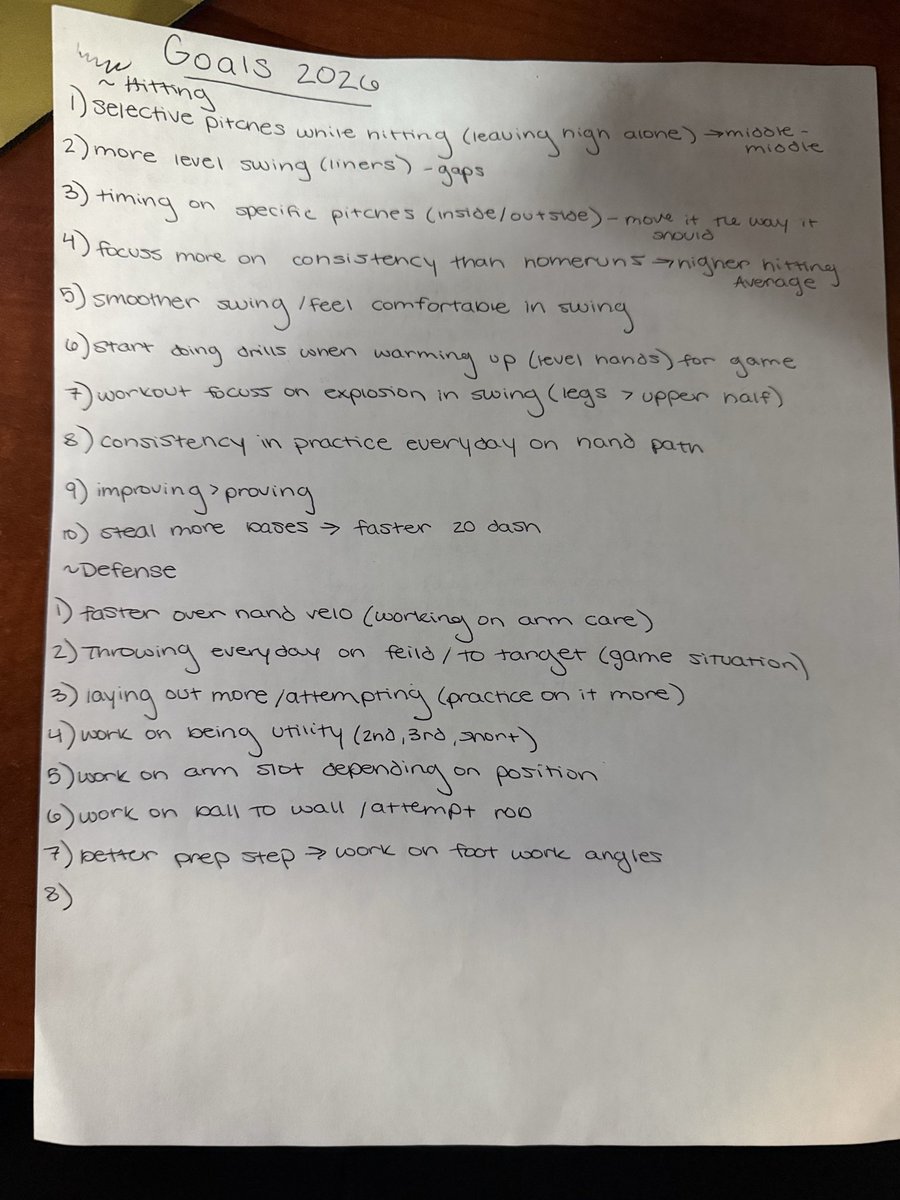 Goals 2026
~ Hitting
1) selective pitches while hitting (leaving high alone) → middle -
middle
2) more level swing (liners) - gaps
3) timing on specific pitches (inside/outside) - move it the way it
should
4) focuss more on consistency than homeruns → higher hitting
Average
5) smoother swing / feel comfortable in swing
6) start doing drills when warming up (level hands) for game
7) workout focuss on explosion in swing (legs > upper half)
8) consistency in practice everyday on hand path
9) improving > proving
10) steal more bases → faster 20 dash
~ Defense
1) faster over hand velo (working on arm care)
2) Throwing everyday on feild / to target (game situation)
3) laying out more / attempting (practice on it more)
4) work on being utility (2nd, 3rd, short)
5) work on arm slot depending on position
6) work on ball to wall / attempt rob
7) better prep step → work on foot work angles
8)